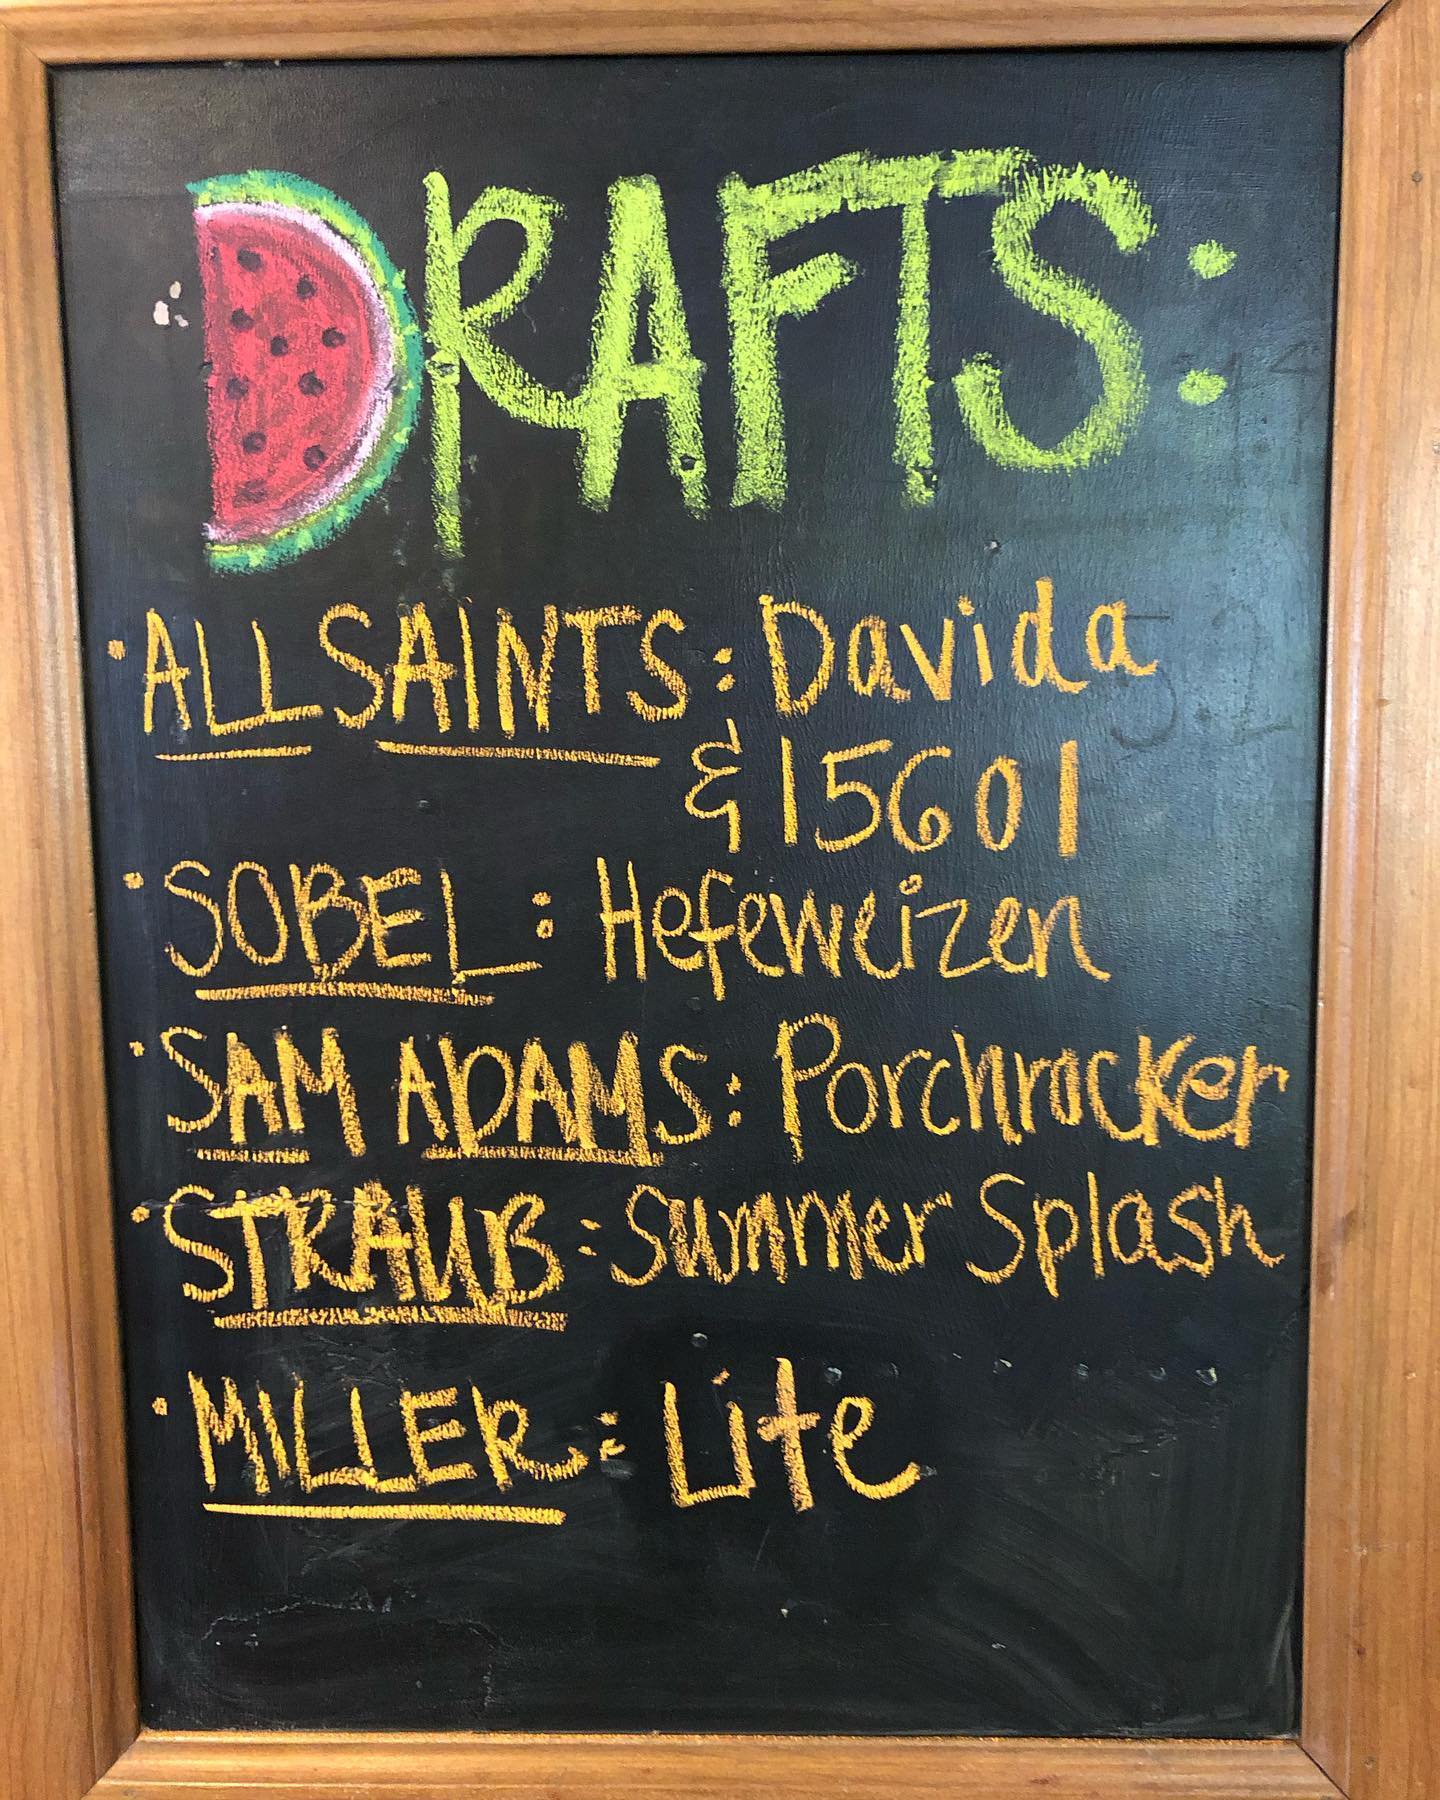 DRAFTS:
• ALLSAINTS: Davida
& 15601
• SOBEL: Hefeweizen
• SAM ADAMS: Porchrocker
• STRAUB: Summer Splash
• MILLER: Lite